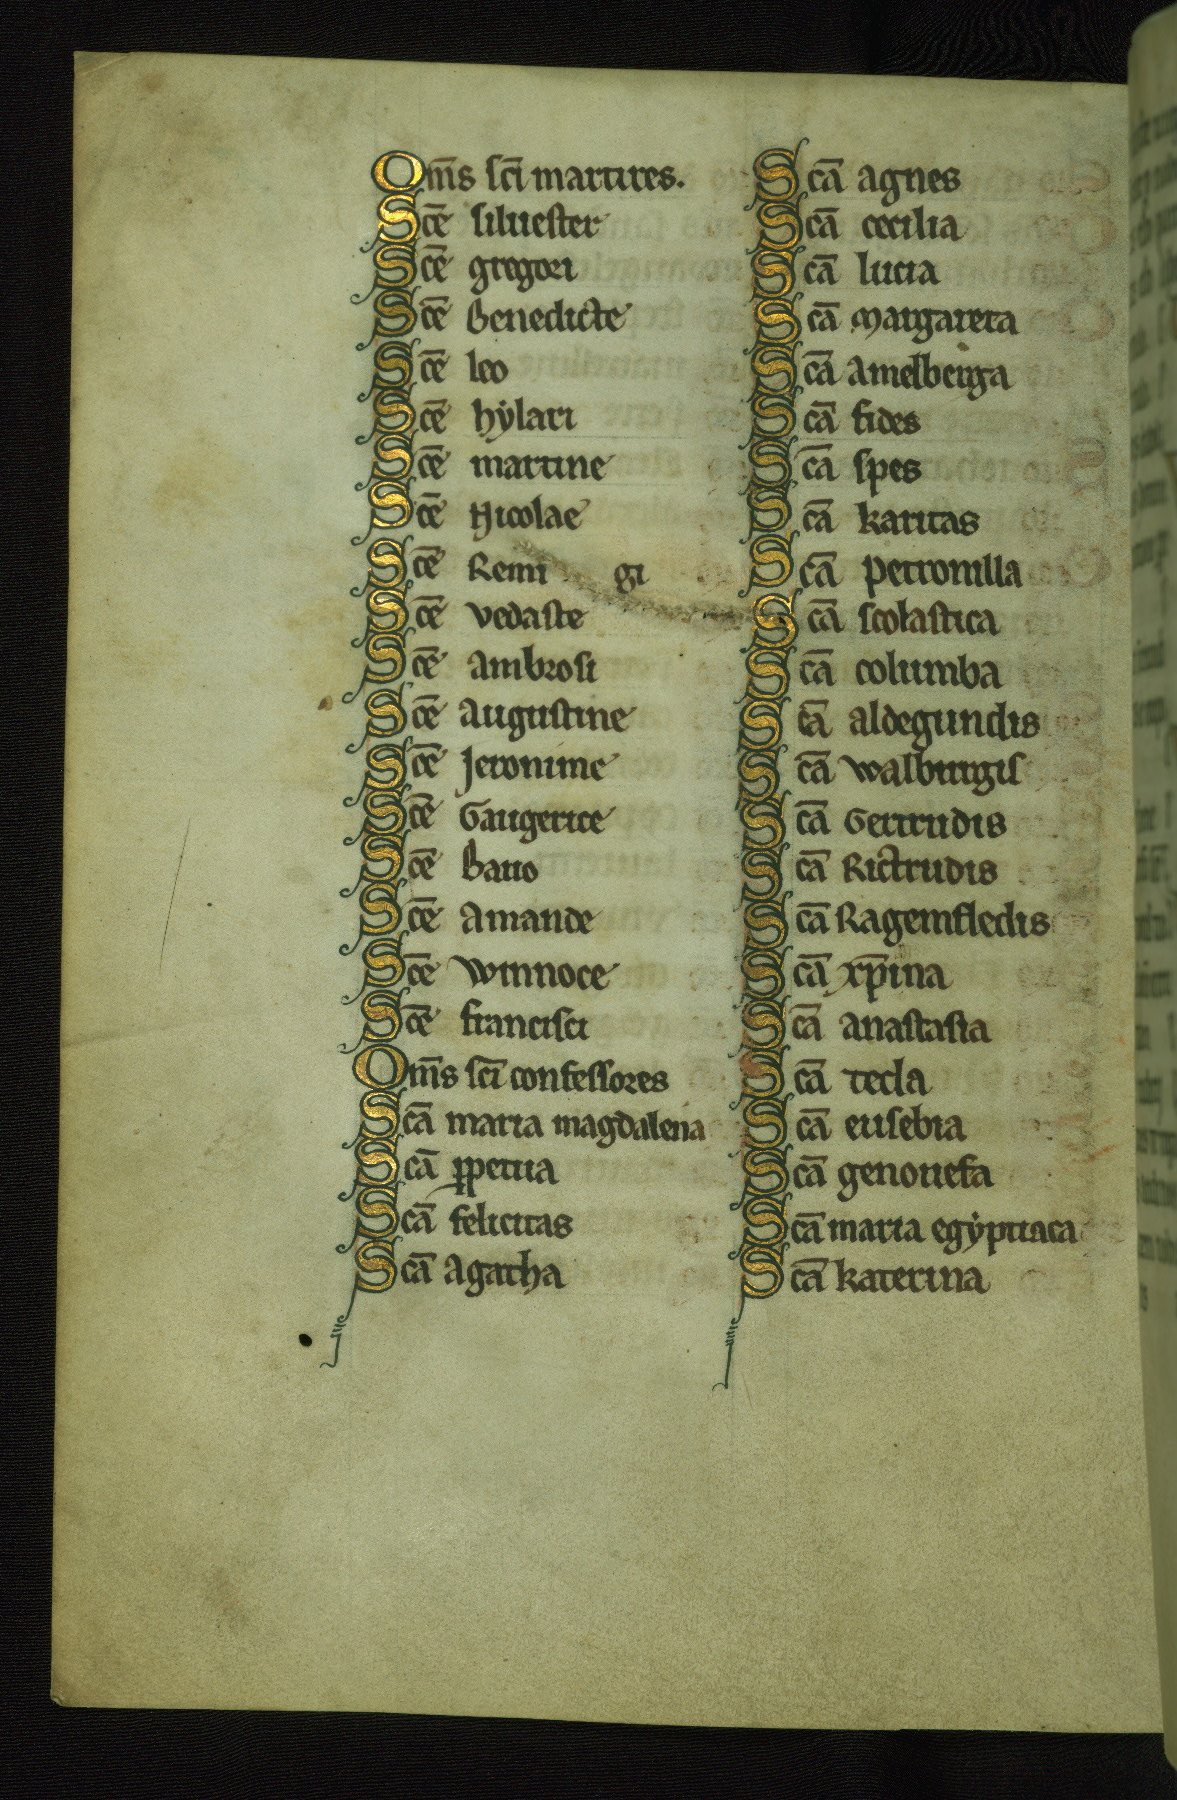 Om̄s sc̄i martires.
Sc̄e siluester
Sc̄e gregori
Sc̄e Benedicte
Sc̄e leo
Sc̄e hẏlari
Sc̄e martine
Sc̄e Nicolae
Sc̄e Remi gi
Sc̄e vedaste
Sc̄e ambrosi
Sc̄e augustine
Sc̄e Jeronime
Sc̄e Gaugerice
Sc̄e bauo
Sc̄e Amande
Sc̄e winnoce
Sc̄e francisci
Om̄s sc̄i confessores
Sc̄a maria magdalena
Sc̄a ꝑpetua
Sc̄a felicitas
Sc̄a Agatha
Sc̄a agnes
Sc̄a cecilia
Sc̄a lucia
Sc̄a margareta
Sc̄a Amelberga
Sc̄a fides
Sc̄a spes
Sc̄a karitas
Sc̄a petronilla
Sc̄a scolastica
Sc̄a columba
Sc̄a aldegundis
Sc̄a walburgis
Sc̄a Gertrudis
Sc̄a Rictrudis
Sc̄a Ragemfledis
Sc̄a xp̄ina
Sc̄a anastasia
Sc̄a tecla
Sc̄a eusebia
Sc̄a genouefa
Sc̄a maria egẏptiaca
Sc̄a katerina